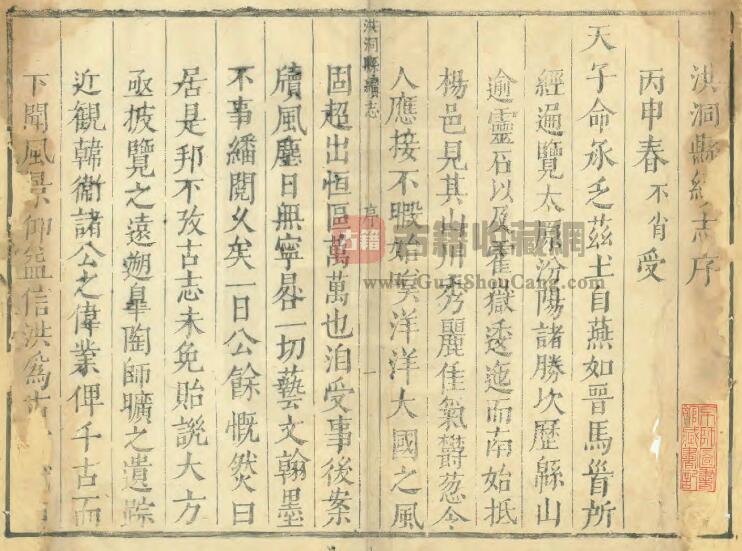 洪洞縣續志序
丙申春不肖受
天子命承乏茲土自燕如晋馬首所
經遍覽太原汾陽諸勝次歷緜山
逾靈石以及霍嶽逶迤而南始抵
楊邑見其山川秀麗佳氣欝葱令
人應接不暇始嘆洋洋大國之風
洪洞縣續志 序 一
固超出恒區萬萬也洎受事後案
牘風塵日無寧晷一切藝文翰墨
不事繙閱久矣一日公餘慨然曰
居是邦不攷古志未免貽誚大方
亟披覽之遠遡臯陶師曠之遺踪
近觀韓衛諸公之偉業俾千古而
下聞風景仰益信洪爲古
古籍 古籍收藏網
www.GuJiShouCang.com